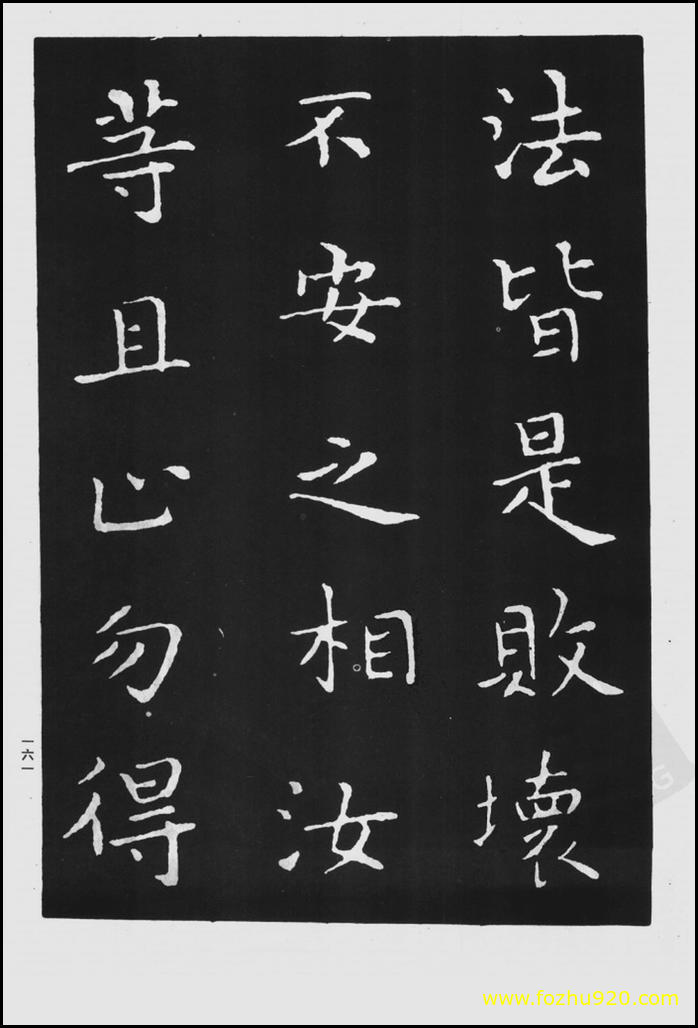 法皆是敗壞
不安之相汝
等且止勿得
一六一
www.fozhu920.com